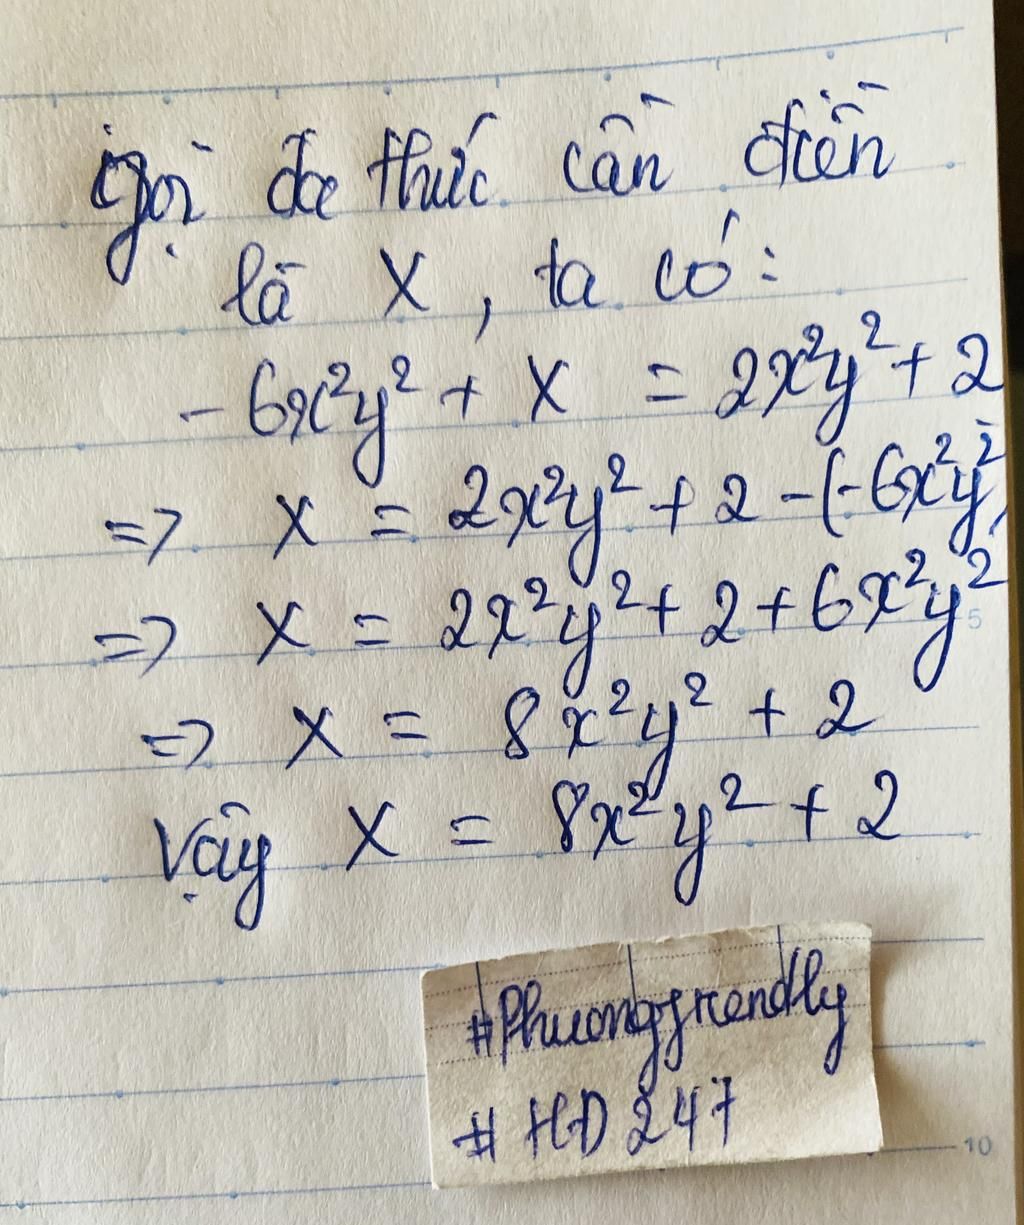 Gọi đa thức cần điền
là X, ta có:
-6x²y² + X = 2x²y² + 2
=> X = 2x²y² + 2 - (-6x²y²)
=> X = 2x²y² + 2 + 6x²y²
=> X = 8x²y² + 2
Vậy X = 8x²y² + 2
5
#Phuongfrendly
# HD 247
10